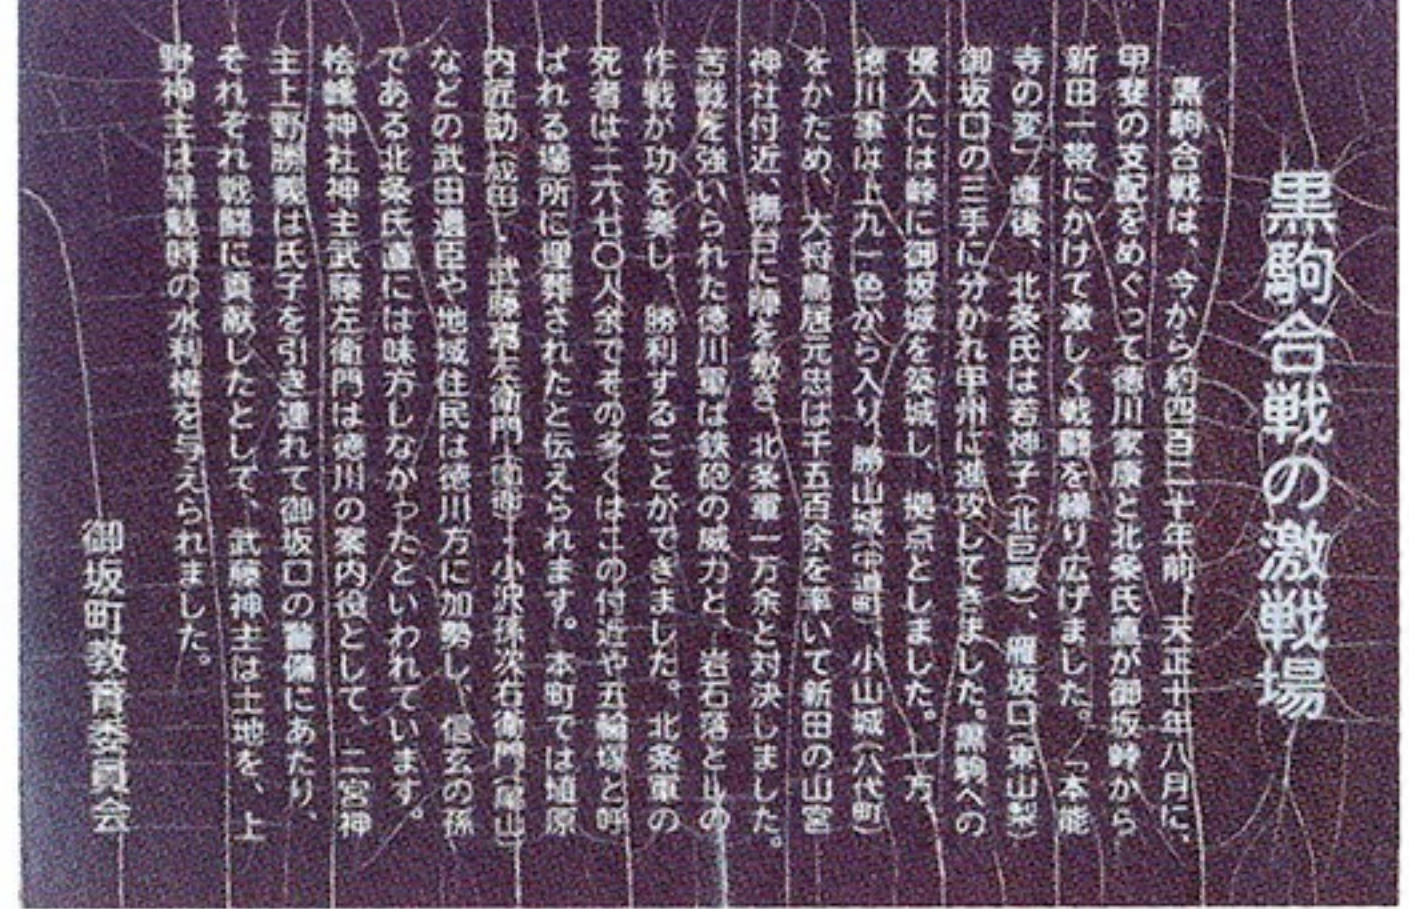 黒駒合戦の激戦場
黒駒合戦は、今から約四百二十年前、天正十年八月に、
甲斐の支配をめぐって徳川家康と北条氏直が御坂峠から
新田一帯にかけて激しく戦闘を繰り広げました。「本能
寺の変」直後、北条氏は若神子（北巨摩）、雁坂口（東山梨）
御坂口の三手に分かれ甲州に進攻してきました。黒駒への
侵入には峠に御坂城を築城し、拠点としました。一方、
徳川軍は上九一色から入り、勝山城（中道町）、小山城（八代町）
をかため、大将鳥居元忠は千五百余を率いて新田の山宮
神社付近、に陣を敷き、北条軍一万余と対決しました。
苦戦を強いられた徳川軍は鉄砲の威力と、岩石落としの
作戦が功を奏し、勝利することができました。北条軍の
死者は二六七〇人余でその多くはこの付近や五輪塚と呼
ばれる場所に埋葬されたと伝えられます。本町では埴原
内匠助（成田）・武藤嘉左衛門・小沢孫次右衛門（尾山）
などの武田遺臣や地域住民は徳川方に加勢し、信玄の孫
である北条氏直には味方しなかったといわれています。
桧峰神社神主武藤左衛門は徳川の案内役として、二宮神
主上野勝義は氏子を引き連れて御坂口の警備にあたり、
それぞれ戦闘に貢献したとして、武藤神主は土地を、上
野神主は旱魃時の水利権を与えられました。
御坂町教育委員会